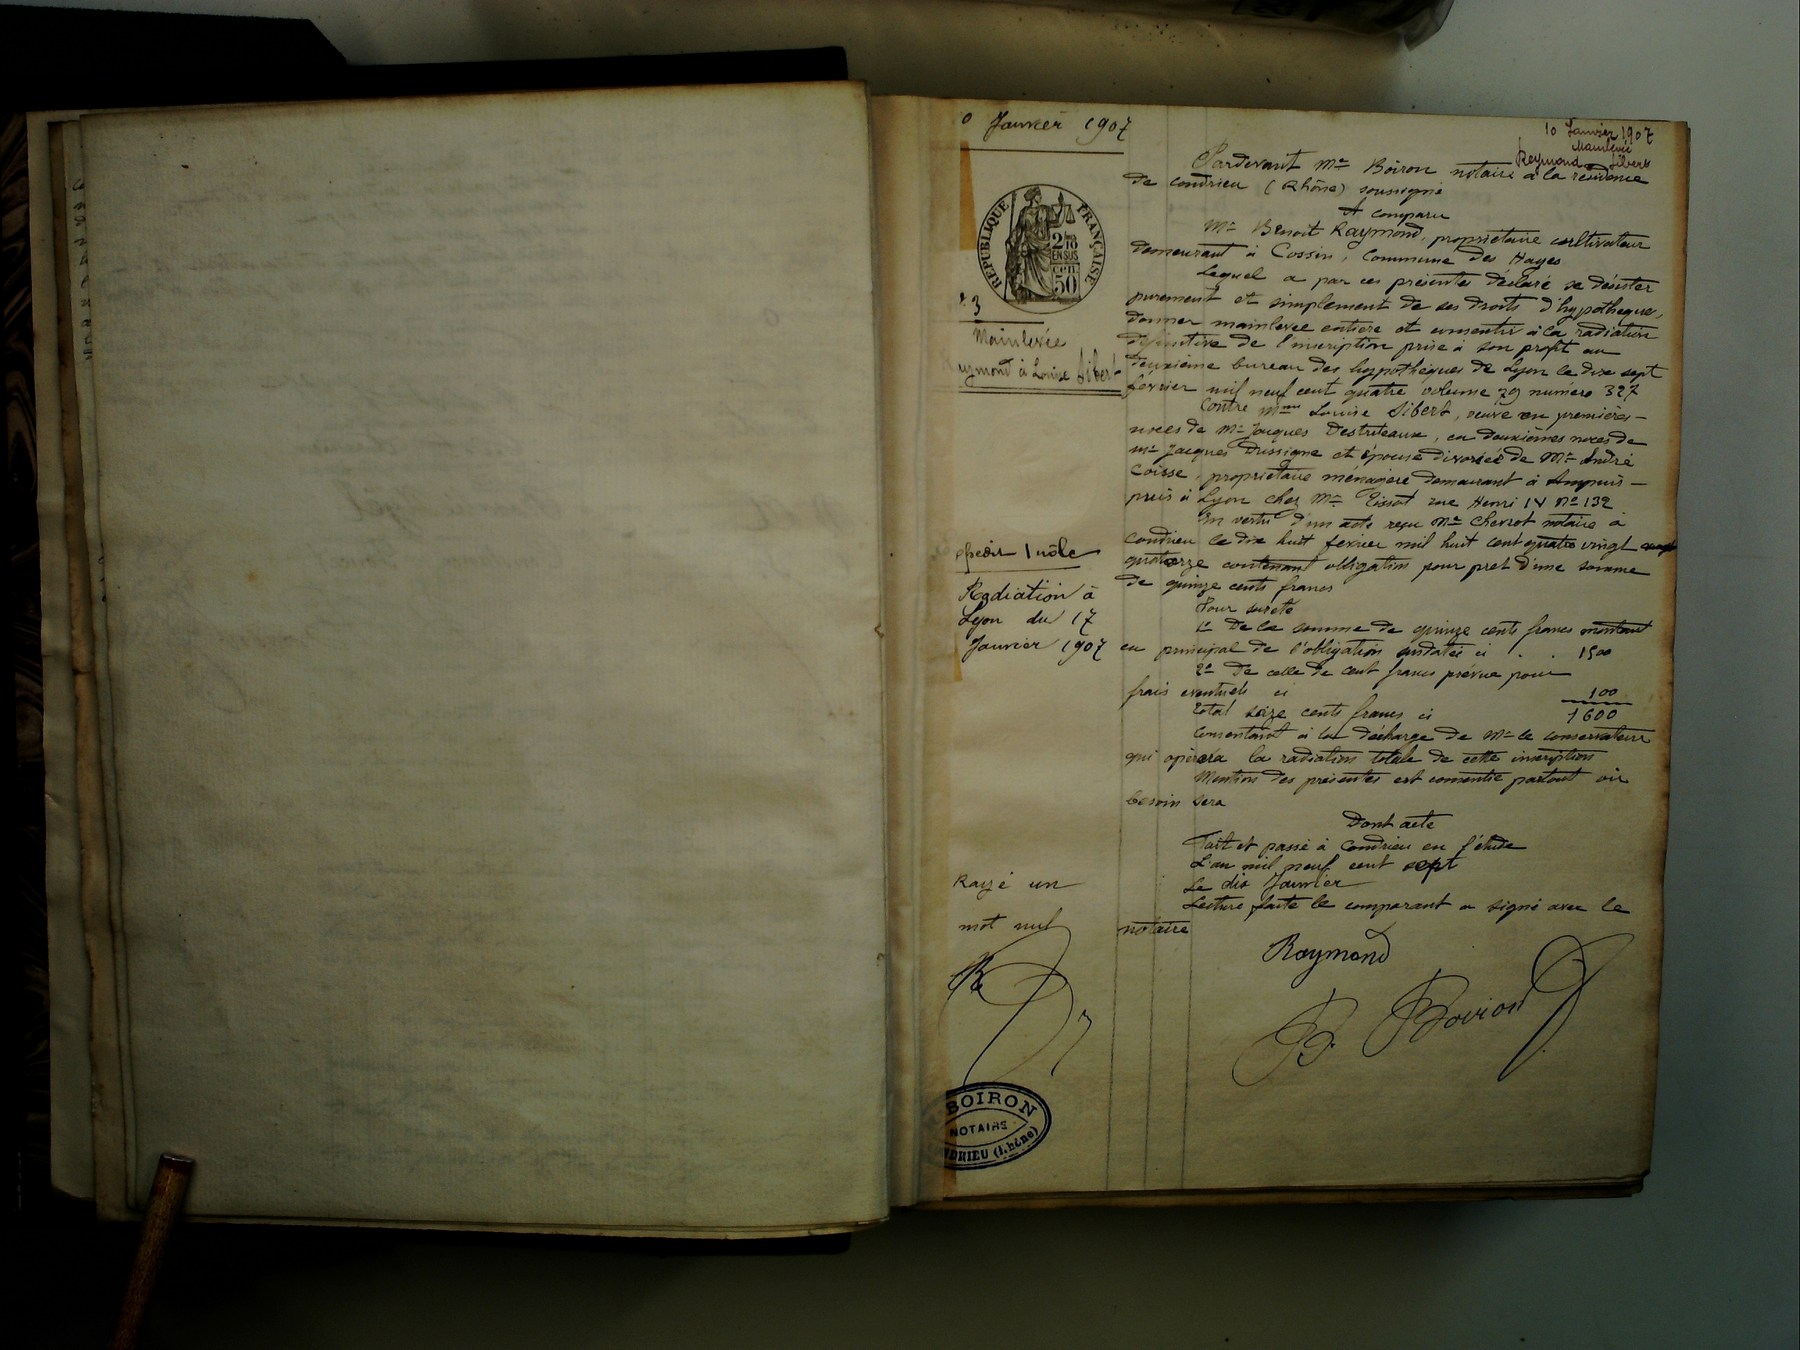 0 Janvier 1907
10 Janvier 1907
Mainlevée
Reymond Sibert
RÉPUBLIQUE FRANÇAISE
2/10
EN SUS
50
3
Mainlevée
Raymond à Louise Sibert
Pardevant Me Boiron notaire à la résidence
de Condrieu (Rhône) soussigné
A comparu
Mr Benoit Raymond, propriétaire cultivateur
demeurant à Cossin, Commune des Hayes
Lequel a par ces présentes déclaré se désister
purement et simplement de ses droits d'hypothèque,
donner mainlevée entière et consentir à la radiation
définitive de l'inscription prise à son profit au
deuxième bureau des hypothèques de Lyon le dix sept
février mil neuf cent quatre volume 79 numéro 327
Contre Mme Louise Sibert, veuve en premières
noces de Mr Jacques Destruteaux, en deuxièmes noces de
Mr Jacques Dussigne et épouse divorcée de Mr André
Coisse, propriétaire ménagère demeurant à Ampuis
puis à Lyon chez Mr Tissot rue Henri IV No 132
En vertu d'un acte reçu Me Chevrot notaire à
Condrieu le dix huit février mil huit cent quatre vingt
quatorze contenant obligation pour prêt d'une somme
de quinze cents francs
Pour sureté
1° De la somme de quinze cents francs montant
en principal de l'obligation susdatée ci . . 1500
2° De celle de cent francs prévue pour
frais eventuels ci 100
Total seize cents francs ci 1600
Consentant à la décharge de Mr le conservateur
qui opèrera la radiation totale de cette inscription
Mention des présentes est consentie partout où
besoin sera
Dont acte
Fait et passé à Condrieu en l'étude
L'an mil neuf cent sept
Le dix Janvier
Lecture faite le comparant a signé avec le
notaire
expédié 1 rôle
Radiation à
Lyon du 17
Janvier 1907
Rayé un
mot nul
R
Raymond
B. Boiron
BOIRON
NOTAIRE
NDRIEU (Rhône)